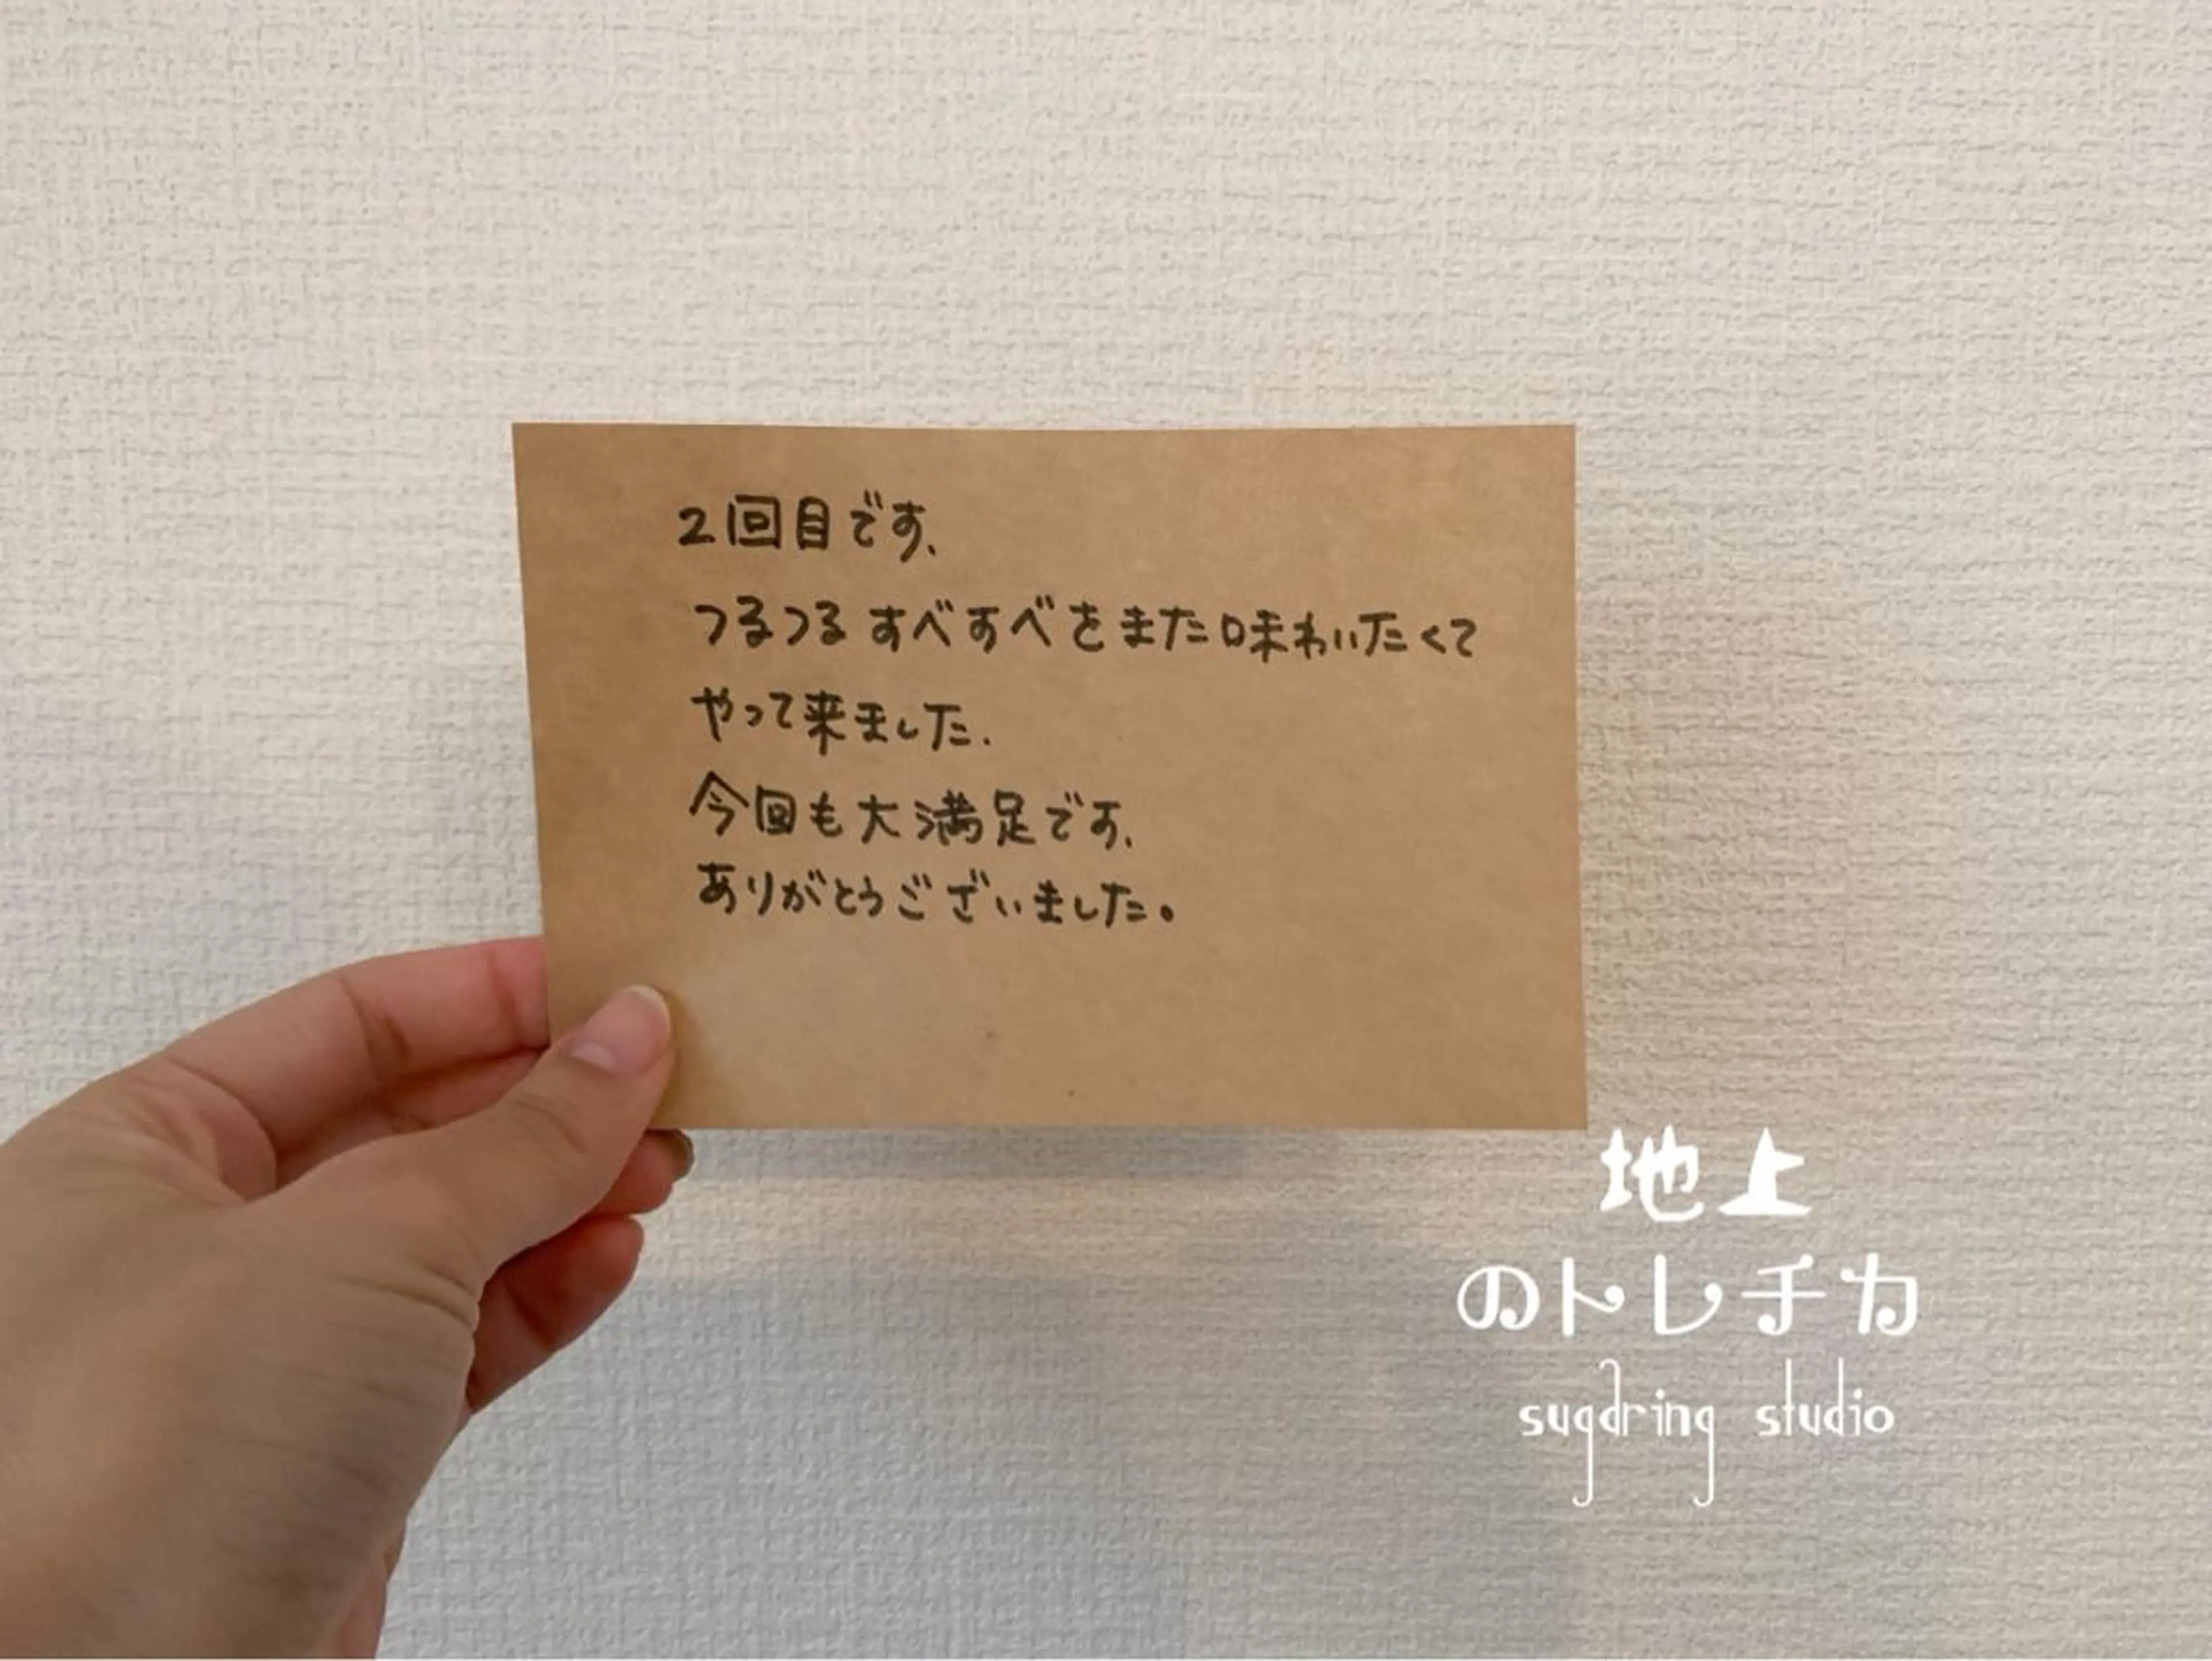 2回目です、
つるつるすべすべをまた味わいたくて
やって来ました.
今回も大満足です、
ありがとうございました。
地上
のトレチカ
sugaring studio